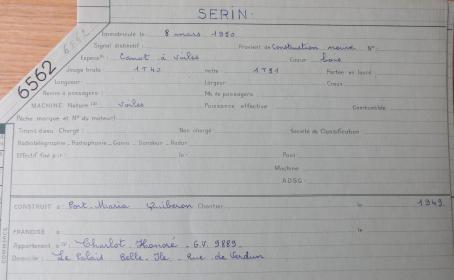 SERIN.
6562
6562
Immatriculé le : 8 mars 1950
Signal distinctif : Provient de Construction neuve N° :
Espèce : Canot à voiles Coque bois
Jauge brute : 1 T 40 nette 1 T 31 Portée en lourd :
Longueur : Largeur : Creux :
Navire à passagers : Nb de passagers :
MACHINE Nature (2) voiles Puissance effective Combustible :
Pêche marque et N° du moteur)
Tirant d'eau Chargé : Non chargé : Société de Classification
Radiotélégraphie - Radiophonie - Gonio - Sondeur - Radar
Effectif fixé par : le : Pont :
Machine :
ADSG :
CONSTRUIT à Port-Maria Quiberon Chantier : le 1949.
FRANCISÉ à le
Appartenant à Charlot - Honoré - G.V. 9889.
Domicile : Le Palais Belle-Ile - Rue de Verdun
COMMERCE